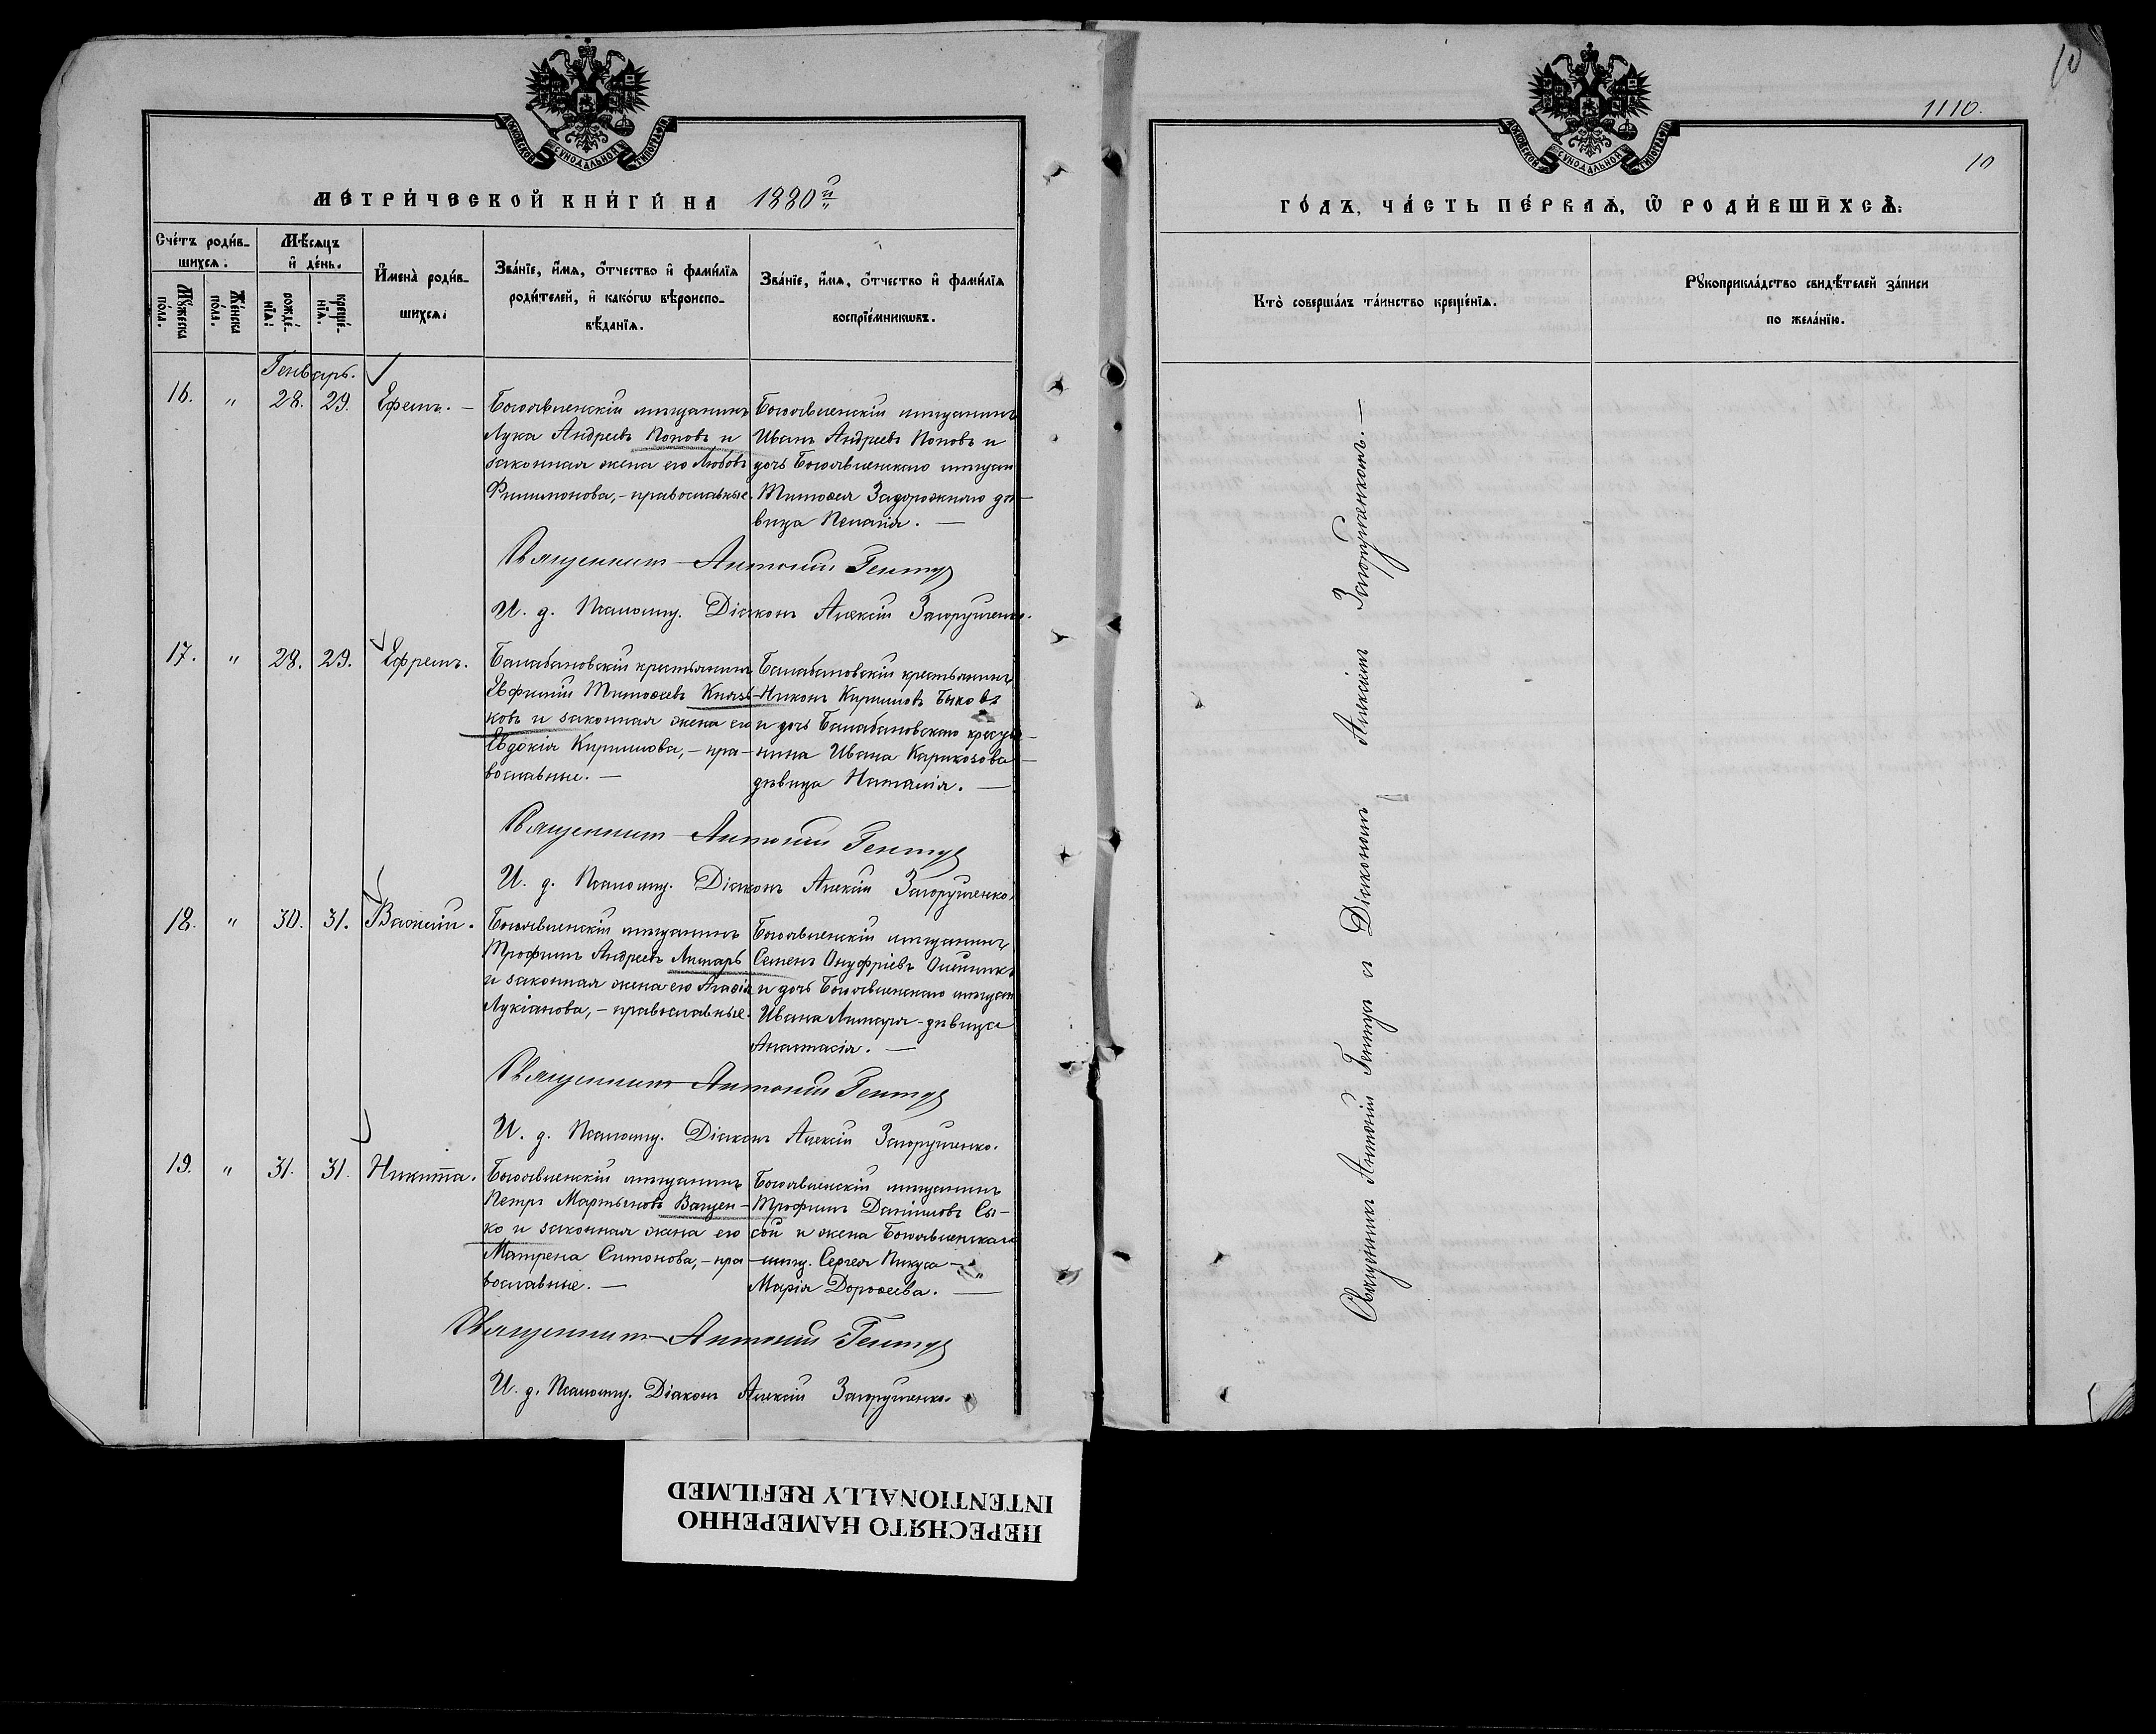 МОСКОВСКОЙ СѴНОДАЛЬНОЙ ТИПОГРАФІИ
МЕТРИ́ЧЕСКОЙ КНИ́ГИ НА 1880й
Сче́тъ роди́вшихсѧ:
Мꙋ́жеска по́ла.
Же́нска по́ла.
Мѣ́сѧцъ и҆ де́нь.
рожде́нїѧ:
креще́нїѧ.
И҆мена̀ роди́вшихсѧ:
Зва́нїе, и҆́мѧ, ѻ҆́тчество и҆ фами́лїѧ
роди́телей, и҆ како́гѡ вѣроиспо-
вѣ́данїѧ.
Зва́нїе, и҆́мѧ, ѻ҆́тчество и҆ фами́лїѧ
воспрїе́мникѡвъ.
Генварь.
16. " 28. 29. Ефремъ. –
Богоявленскій мѣщанинъ
Лука Андреевъ Поповъ и
законная жена его Любовь
Филимонова, – православные.
Богоявленскій мѣщанинъ
Иванъ Андреевъ Поповъ и
дочь Богоявленскаго мѣщан
Тимоѳея Задорожнаго дѣ-
вица Пелагія. —
Священникъ Антоній Гентуз
И. д. Псаломщ. Діаконъ Алексій Загорульченко.
17. " 28. 29. Ефремъ.
Балабановскій крестьянинъ
Евфимій Тимоѳеевъ Князь-
ковъ и законная жена его
Евдокія Кириллова, – пра-
вославные. —
Балабановскій крестьянинъ
Никонъ Кирилловъ Быковъ
и дочь Балабановскаго крестья-
нина Ивана
дѣвица Наталія. —
Священникъ Антоній Гентуз
И. д. Псаломщ. Діаконъ Алексій Загорульченко.
18. " 30. 31.
Богоявленскій мѣщанинъ
Трофимъ Андреевъ Лимарь
и законная жена его Агаѳія
Лукіанова, – православные.
Богоявленскій мѣщанинъ
Семенъ Онуфріевъ Олейникъ
и дочь Богоявленскаго мѣщан
Ивана Лимаря – дѣвица
Анастасія. —
Священникъ Антоній Гентуз
И. д. Псаломщ. Діаконъ Алексій Загорульченко.
19. " 31. 31. Никита.
Богоявленскій мѣщанинъ
Петръ Мартыновъ Ващен-
ко и законная жена его
Матрена Симонова, – пра-
вославные. —
Богоявленскій мѣщанинъ
Трофимъ Даниловъ Сы-
сой и жена Богоявленскаго
мѣщ. Сергея Пикуса –
Марія Дороѳеева. —
Священникъ Антоній Гентуз
И. д. Псаломщ. Діаконъ Алексій Загорульченко.
1110.
10
10
МОСКОВСКОЙ СѴНОДАЛЬНОЙ ТИПОГРАФІИ
ГО́ДЪ, ЧА́СТЬ ПЕ́РВАѦ, Ѿ РОДИ́ВШИХСѦ:
Кто̀ соверша́лъ та́инство креще́нїѧ.
Рꙋкоприкла́дство свидѣ́телей за́писи
по жела́нїю.
Священникъ Антоній Гентуз и Діакономъ Алексіемъ Загорульченкомъ. —
ПЕРЕСНЯТО НАМЕРЕННО
INTENTIONALLY REFILMED